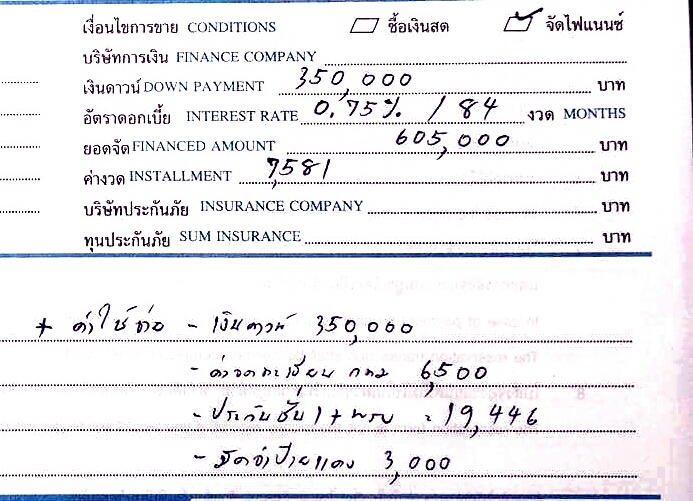 เงื่อนไขการขาย CONDITIONS ซื้อเงินสด ✓ จัดไฟแนนซ์
บริษัทการเงิน FINANCE COMPANY
เงินดาวน์ DOWN PAYMENT 350,000 บาท
อัตราดอกเบี้ย INTEREST RATE 0.75% / 84 งวด MONTHS
ยอดจัด FINANCED AMOUNT 605,000 บาท
ค่างวด INSTALLMENT 7,581 บาท
บริษัทประกันภัย INSURANCE COMPANY บาท
ทุนประกันภัย SUM INSURANCE บาท
+ ค่าใช้จ่าย - เงินดาวน์ 350,000
- ค่าจดทะเบียน กทม 6,500
- ประกันชั้น 1 + พรบ = 19,446
- มัดจำป้ายแดง 3,000